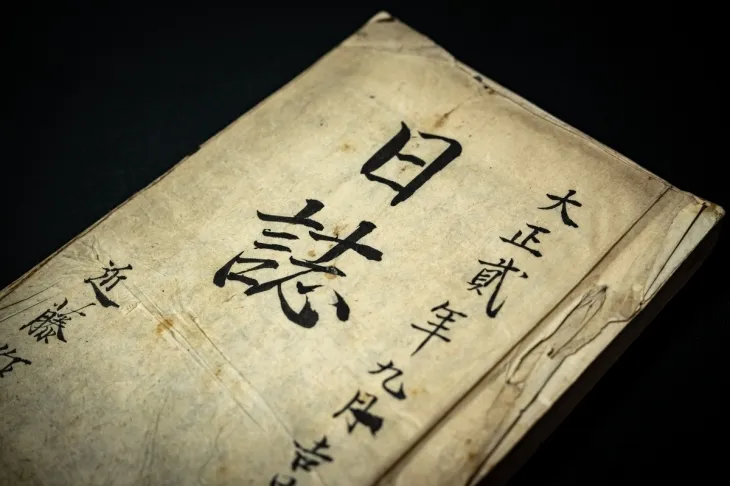 大正貳年九月吉
日誌
近藤